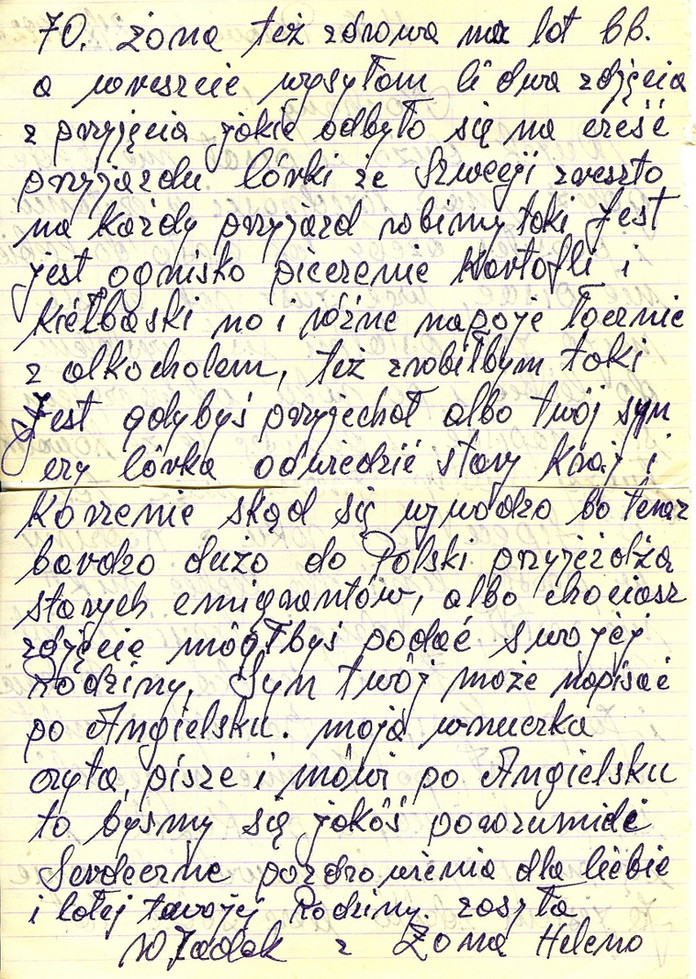 70. żona też zdrowa ma lat 66.
a wreszcie wysyłam Ci dwa zdjęcia
z przyjęcia jakie odbyło się na cześć
przyjazdu córki ze Szwecji zreszto
na każdy przyjazd robimy taki Jest
jest ognisko pieczenie Kartofli i
kiełbaski no i różne napoje łącznie
z alkocholem, też zrobiłbym taki
Jest gdybyś przyjechał albo twój syn
czy córka odwiedzić stary Kraj i
Korzenie skąd się wywodzo bo teraz
bardzo dużo do Polski przyjeżdża
starych emigrantów, albo chociasz
zdjęcie mógłbyś podać swojej
Rodziny. Syn twój może napisać
po Angielsku. moja wnuczka
czyta, pisze i mówi po Angielsku
to byśmy się jakoś porozumieli
Serdeczne pozdrowienia dla Ciebie
i całej twojej Rodziny. zasyła
Władek z Żoną Heleno